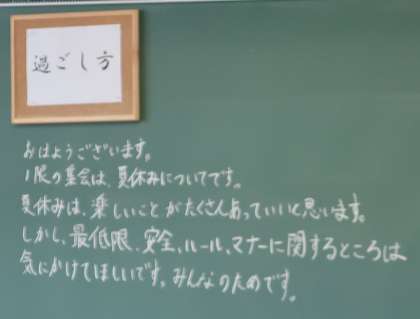 過ごし方
おはようございます。
1限の集会は、夏休みについてです。
夏休みは、楽しいことがたくさんあっていいと思います。
しかし、最低限、安全、ルール、マナーに関するところは
気にかけてほしいです。みんなのためです。